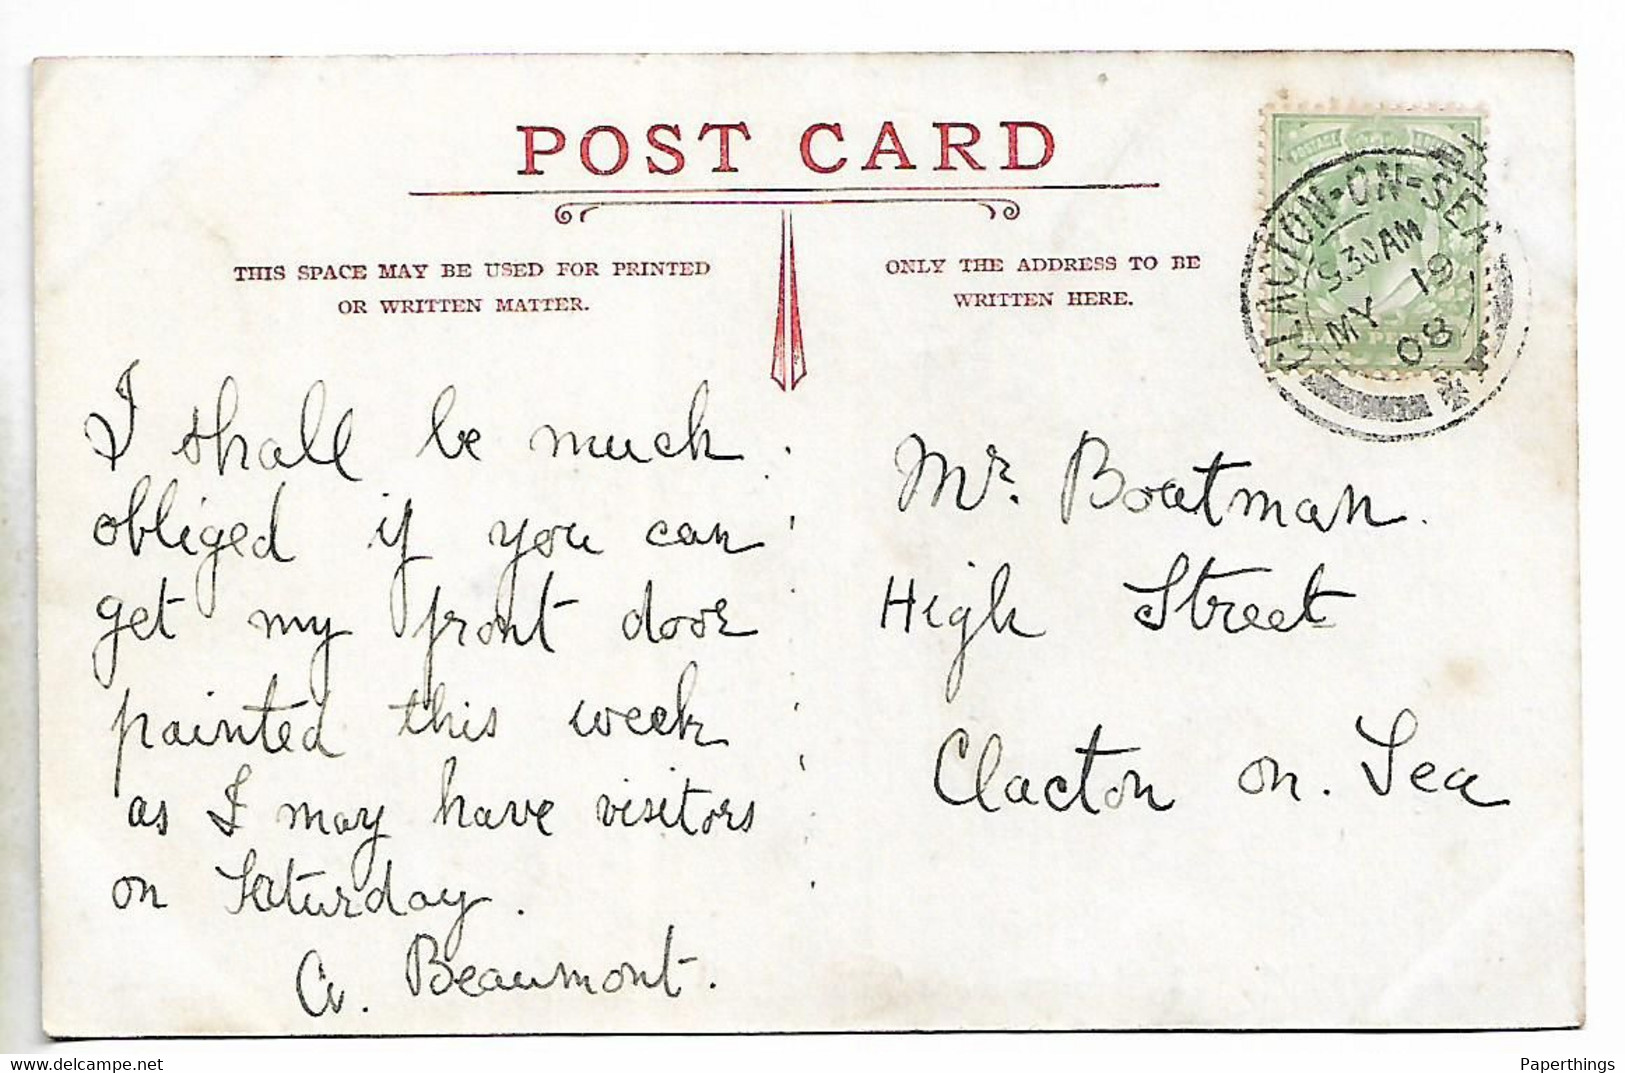 POST CARD
THIS SPACE MAY BE USED FOR PRINTED
OR WRITTEN MATTER.
ONLY THE ADDRESS TO BE
WRITTEN HERE.
CLACTON-ON-SEA
9.30 AM
MY 19
08
I shall be much
obliged if you can
get my front door
painted this week
as I may have visitors
on Saturday.
A. Beaumont.
Mr. Boatman.
High Street
Clacton on. Sea
Paperthings